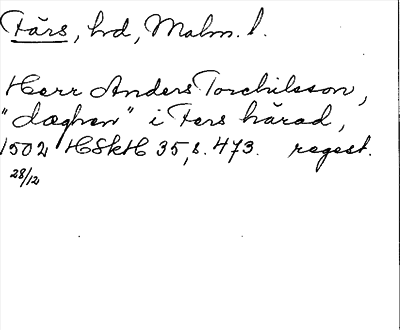 Färs, hd, Malm. l.
Herr Anders Torchilsson,
"dæghen" i Fers härad,
1502 HSkH 35, s. 473. regest.
28/12